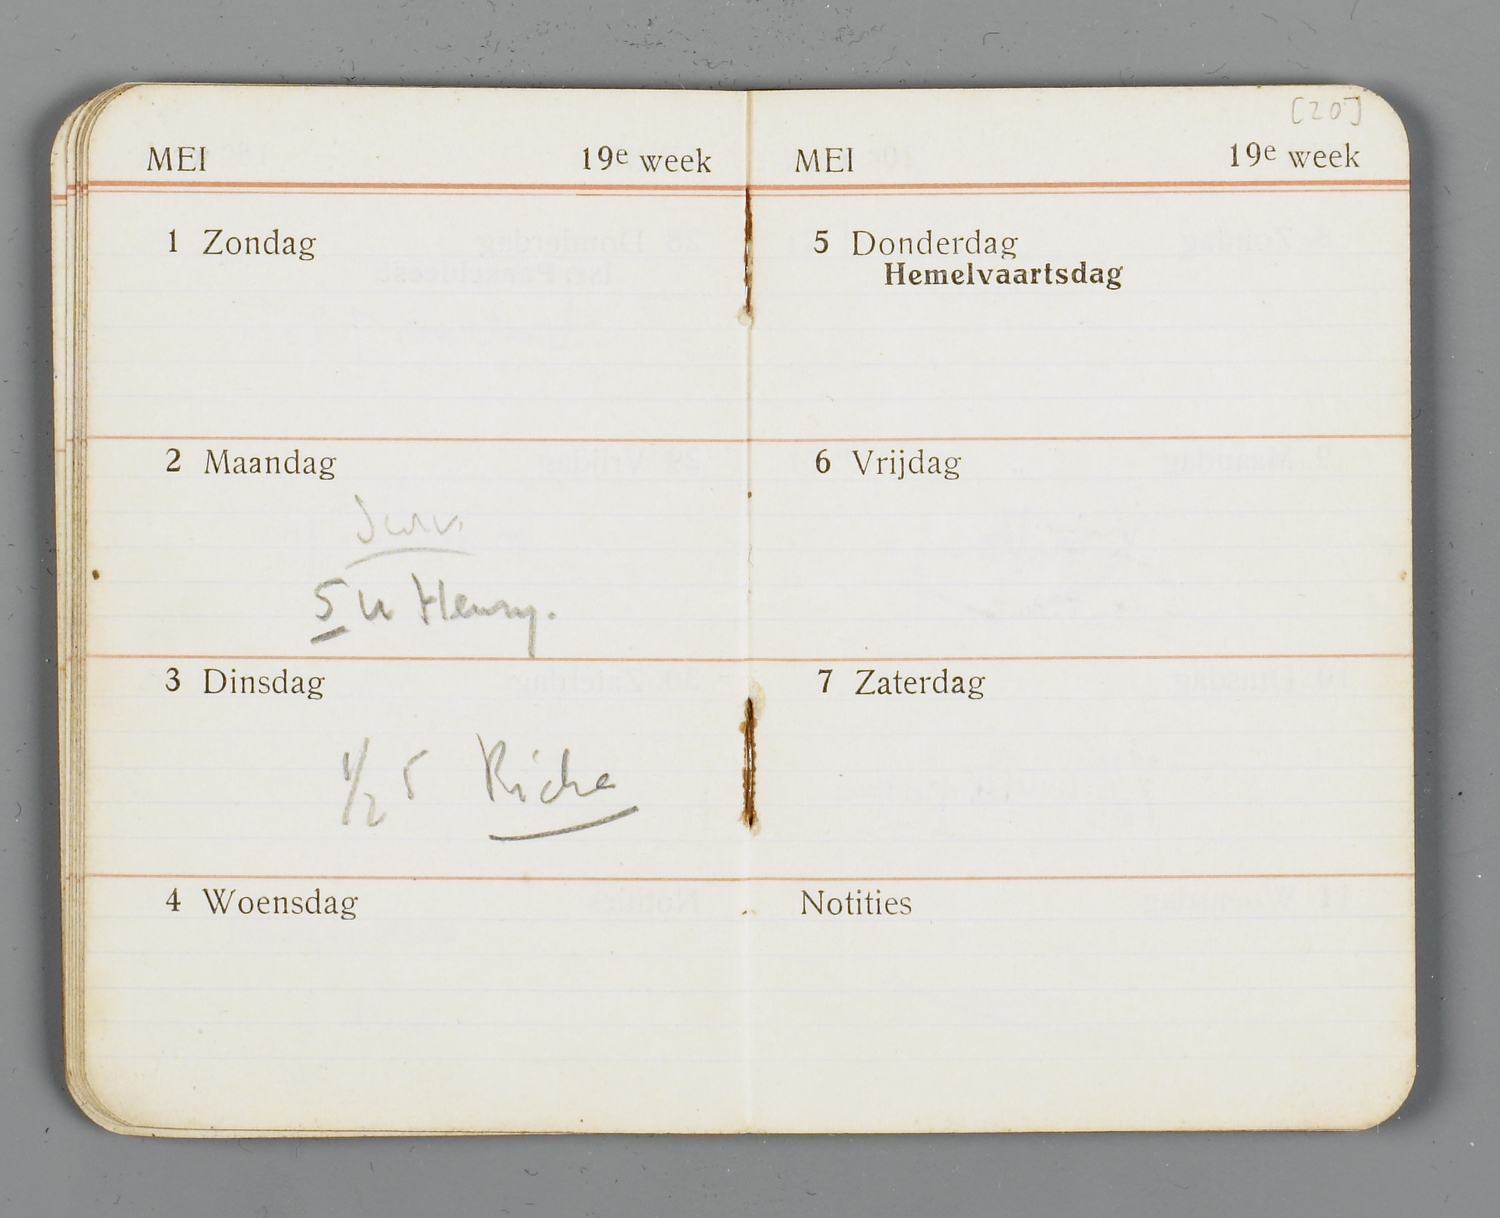 MEI 19e week
1 Zondag
2 Maandag
5 u Henry.
3 Dinsdag
1/2 5 Riche
4 Woensdag
[20]
MEI 19e week
5 Donderdag
Hemelvaartsdag
6 Vrijdag
7 Zaterdag
Notities